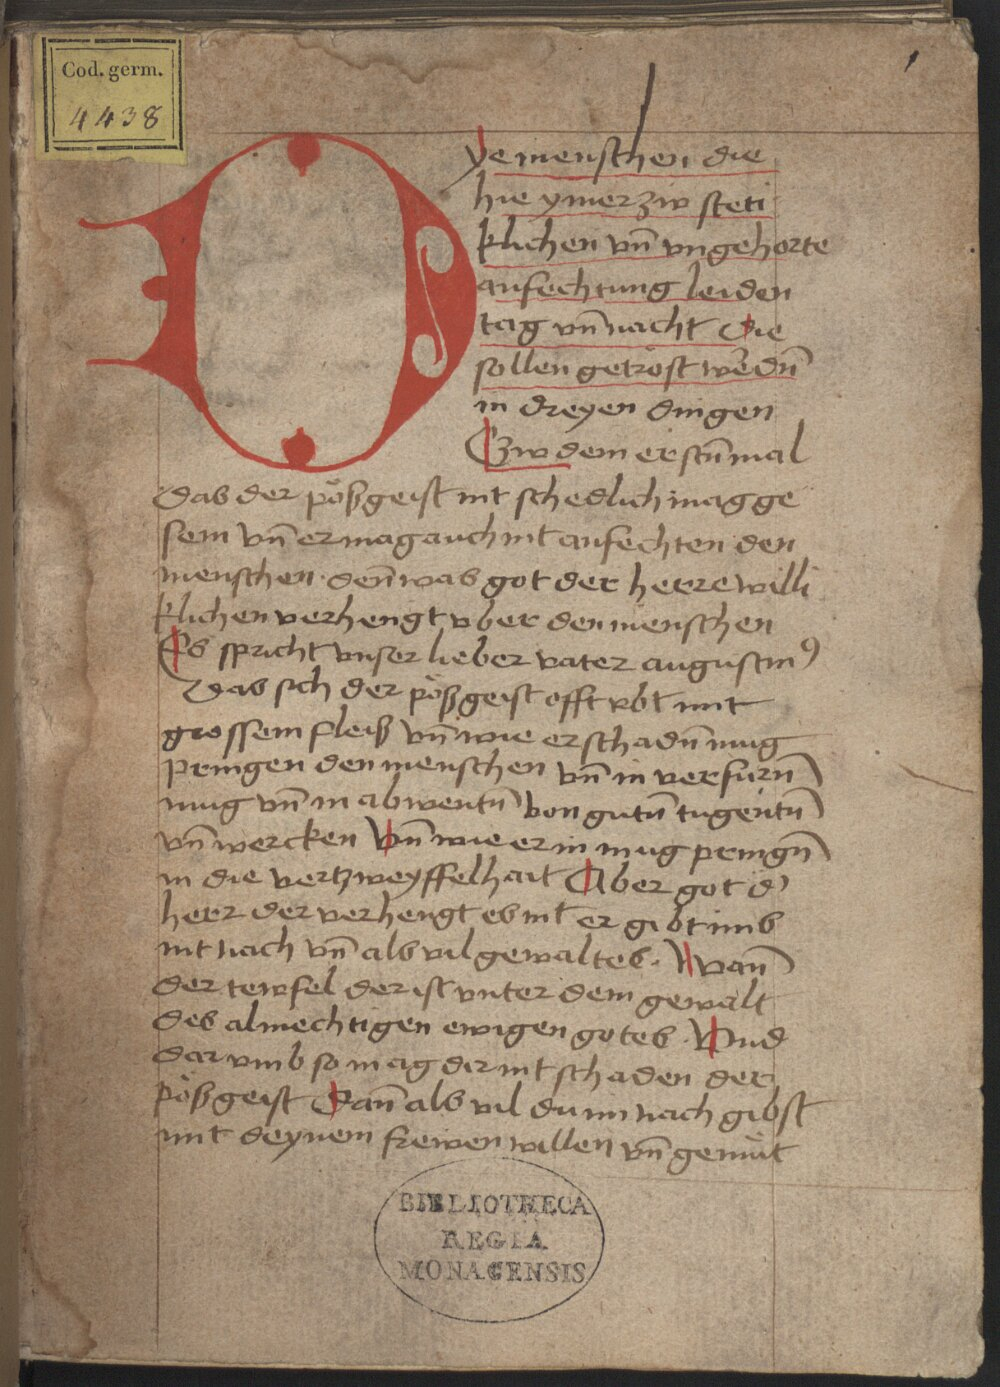 Cod. germ.
4438
1
Dye menschen die
hie ymer zw steti
klichen vn̄ vngehorte
anfechtung leiden
tag vn̄ nacht Die
sollen getröst werdn̄
in dreyen dingen
Czw dem erstn̄ mal
Das der pößgeist nit schedlich mag ge
sein vn̄ er mag auch nit anfechten den
menschen. denn̄ was got der herre willi
klichen verhengt vber den menschen
Es spricht vnser lieber vater augustinꝰ
Das sich der pößgeist offt vbt mit
grossem fleiß vn̄ wie er schadn̄ mug
pringen den menschen vn̄ in verfurn̄
mug vn̄ in abwentn̄ von gutn̄ tugentn̄
vn̄ wercken Vn̄ wie er in mug pringn̄
in die vertzweyffelhait Aber got d'
herr der verhengt es nit er gibt ims
nit nach vn̄ als vil gewaltes. Wan̄
der tewfel der ist vnter dem gewalt
des almechtigen ewigen gotes. Vnd
dar vmb so mag dir nit schaden der
pößgeist Dan̄ als vil du im nach gibst
mit deynem freien willen vn̄ gemüt
BIBLIOTHECA
REGIA
MONACENSIS